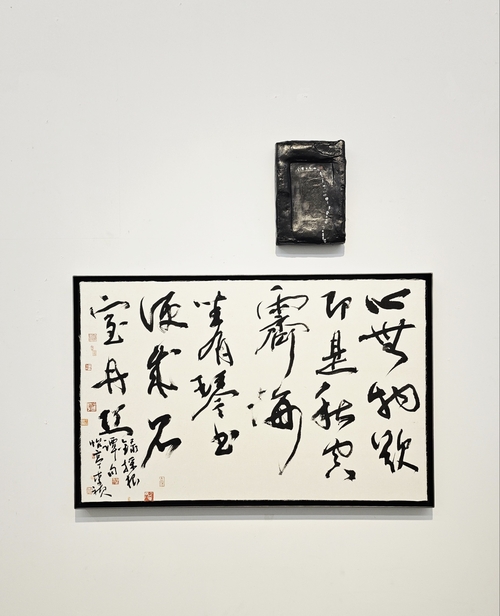 心無物欲
即是秋空
霽海
坐有琴書
便成石
室丹丘
錄採根
譚句